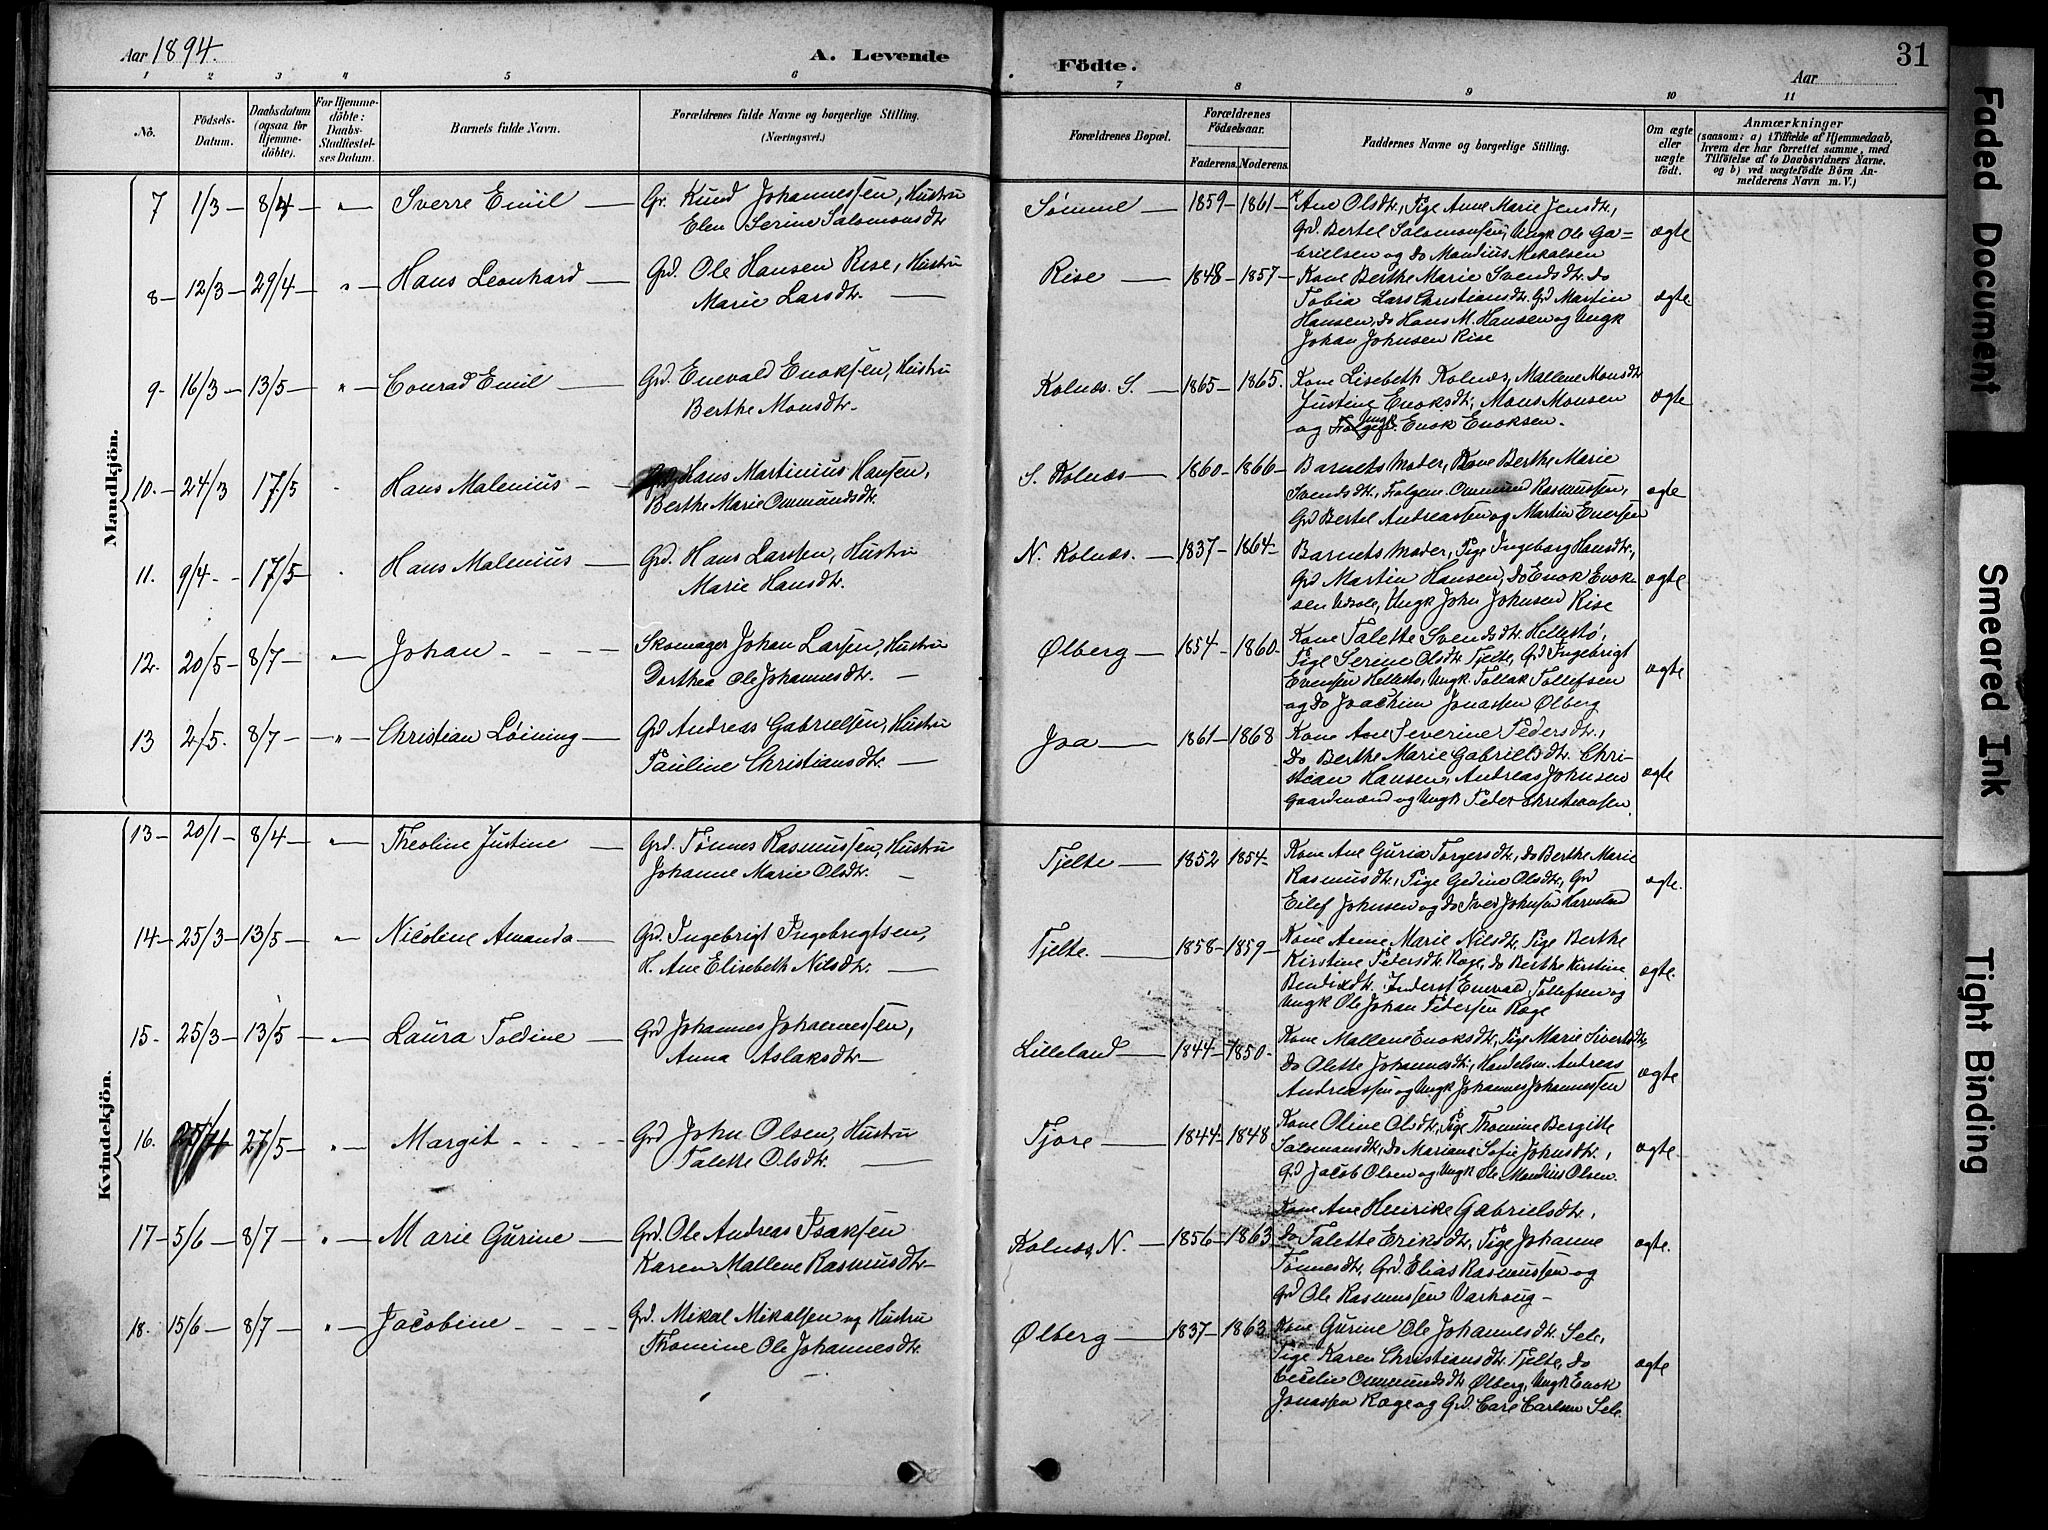 Aar 1894.
A. Levende Födte.
Aar
31
1 2 3 4 5 6 7 8 9 10 11
No.
Födsels-Datum.
Daabsdatum (ogsaa for Hjemme-döbte).
For Hjemme-döbte: Daabs-Stadfæstel-ses Datum.
Barnets fulde Navn.
Forældrenes fulde Navne og borgerlige Stilling.
(Næringsvei.)
Forældrenes Bopæl.
Forældrenes Födselsaar.
Faderens. Moderens.
Faddernes Navne og borgerlige Stilling.
Om ægte eller uægte födt.
Anmærkninger
(saasom: a) i Tilfælde af Hjemmedaab,
hvem der har forrettet samme, med
Tilföielse af to Daabsvidners Navne,
og b) ved uægtefödte Börn An-
melderens Navn m. V.)
Mandkjön.
7 1/3 8/4 " Sverre Emil Gr. Knud Johannessen, Hustru
Elen Serine Salomonsdtr
Sømme 1859 1861 K Ane Olsdtr, Pige Anne Marie Jensdtr,
Grd. Bertel Salomonsen, Ungk Ole Ga-
brielsen og do Mandius Mikalsen
ægte
8 12/3 29/4 " Hans Leonhard Grd. Ole Hansen Rise, Hustru
Marie Larsdtr.
Rise 1848 1857 Kone Berthe Marie Svendsdtr. do
Tobia Lars Christiansdtr. Grd Martin
Hansen, do Hans M. Hansen og Ungk
Johan Johnsen Rise
ægte
9 16/3 13/5 " Conrad Emil Grd. Enevald Enoksen, Hustru
Berthe Monsdtr.
Kolnæs. S. 1865 1865. Kone Lisebeth Kolnæs, Mallene Monsdtr
Justine Enoksdtr, Mons Monsen
og Ungk Enok Enoksen.
ægte
10. 24/3 17/5 Hans Malenius Grd Hans Martinius Hansen,
Berthe Marie Ommundsdtr.
S. Kolnæs 1860 1866 Barnets Moder, Kone Berthe Marie
Svendsdtr, Folgem. Ommund Rasmussen,
Grd Bertel Andreassen og Martin Enersen
ægte
11. 9/4 17/5 Hans Malenius Grd. Hans Larssen, Hustru
Marie Hansdtr.
N. Kolnæs. 1837 1864 Barnets Moder, Pige Ingeborg Hansdtr,
Grd Martin Hansen, do Enok Enok-
sen, Ungk John Johnsen Rise
ægte
12. 20/5 8/7 " Johan Skomager Johan Larsen, Hustru
Dorthea Ole Johannesdtr.
Ølberg 1854 1860 Kone Talette Svendsdtr. Hellestø,
Pige Serine Olsdtr Tjelte, Grd Ingebrigt
Evensen Hellestø, Ungk Tollak Tollefsen
og do Joachim Jonassen Ølberg
ægte
13 2/5. 8/7 " Christian Løining Grd Andreas Gabrielsen, Hustru
Pauline Christiansdtr.
Joa 1861 1868 Kone Ane Severine Pedersdtr,
do Berthe Marie Gabrielsdtr. Chri-
stian Hansen, Andreas Johnsen
Gaardmænd og Ungk Peder Christiansen.
ægte
Kvindekjön.
13 20/1 8/4 " Theoline Justine Grd. Tønnes Rasmussen, Hustru
Johanne Marie Olsdtr.
Tjelte 1852 1854 Kone Ane Guria Torgersdtr, do Berthe Marie
Rasmusdtr, Pige Gedine Olsdtr, Grd
Eilef Johnsen og do Iver Johnsen
ægte.
14 25/3 13/5 " Nicoline Amanda Grd. Ingebrigt Ingebrigtsen,
H. Ane Elisebeth Nilsdtr.
Tjelte. 1858 1859 Kone Anne Marie Nilsdtr, Pige Berthe
Kirstine Pedersdtr. Ræge, do Berthe Kirstine
Bendixdtr. Inderst Enevald Tollefsen og
Ungk Ole Johan Pedersen Ræge
ægte.
15. 25/3 13/5 " Laura Toldine Grd Johannes Johannessen,
Anna Aslaksdtr
Lilleland 1844 1850 Kone Mallene Enoksdtr, Pige Marie Sivertsdtr,
do Olette Johannesdtr, Handelsm. Andreas
Andreassen og Ungk Johannes Johannessen
ægte
16. 27/5 " Margit Grd John Olsen, Hustru
Talette Olsdtr.
Tjore 1844 1848 Kone Oline Olsdtr, Pige Thomine Bergitte
Salomonsdtr, do Mariane Sofie Johnsdtr,
Grd Jacob Olsen og Ungk Ole Mandius Olsen.
ægte
17 5/6 8/7 " Marie Gurine Grd. Ole Andreas Isaksen
Karen Mallene Rasmusdtr
Kolnæs, N. 1856 1863 Kone Ane Henrike Gabrielsdtr,
do Talette Eriksdtr, Pige Johanne
Tønnesdtr, Grd. Elias Rasmussen og
Grd Ole Rasmussen Varhoug
ægte.
18. 15/6 8/7 " Jacobine Grd. Mikal Mikalsen og Hustru
Thomine Ole Johannesdtr.
Ølberg 1837 1863 Kone Gurine Ole Johannesdtr. Sele,
Pige Karen Christiansdtr. Tjelte, do
Cecilie Ommundsdtr Ølberg, Ungk Enok
Jonassen Ræge og Grd. Carl Carlsen Sele.
ægte
Faded Document
Smeared Ink
Tight Binding